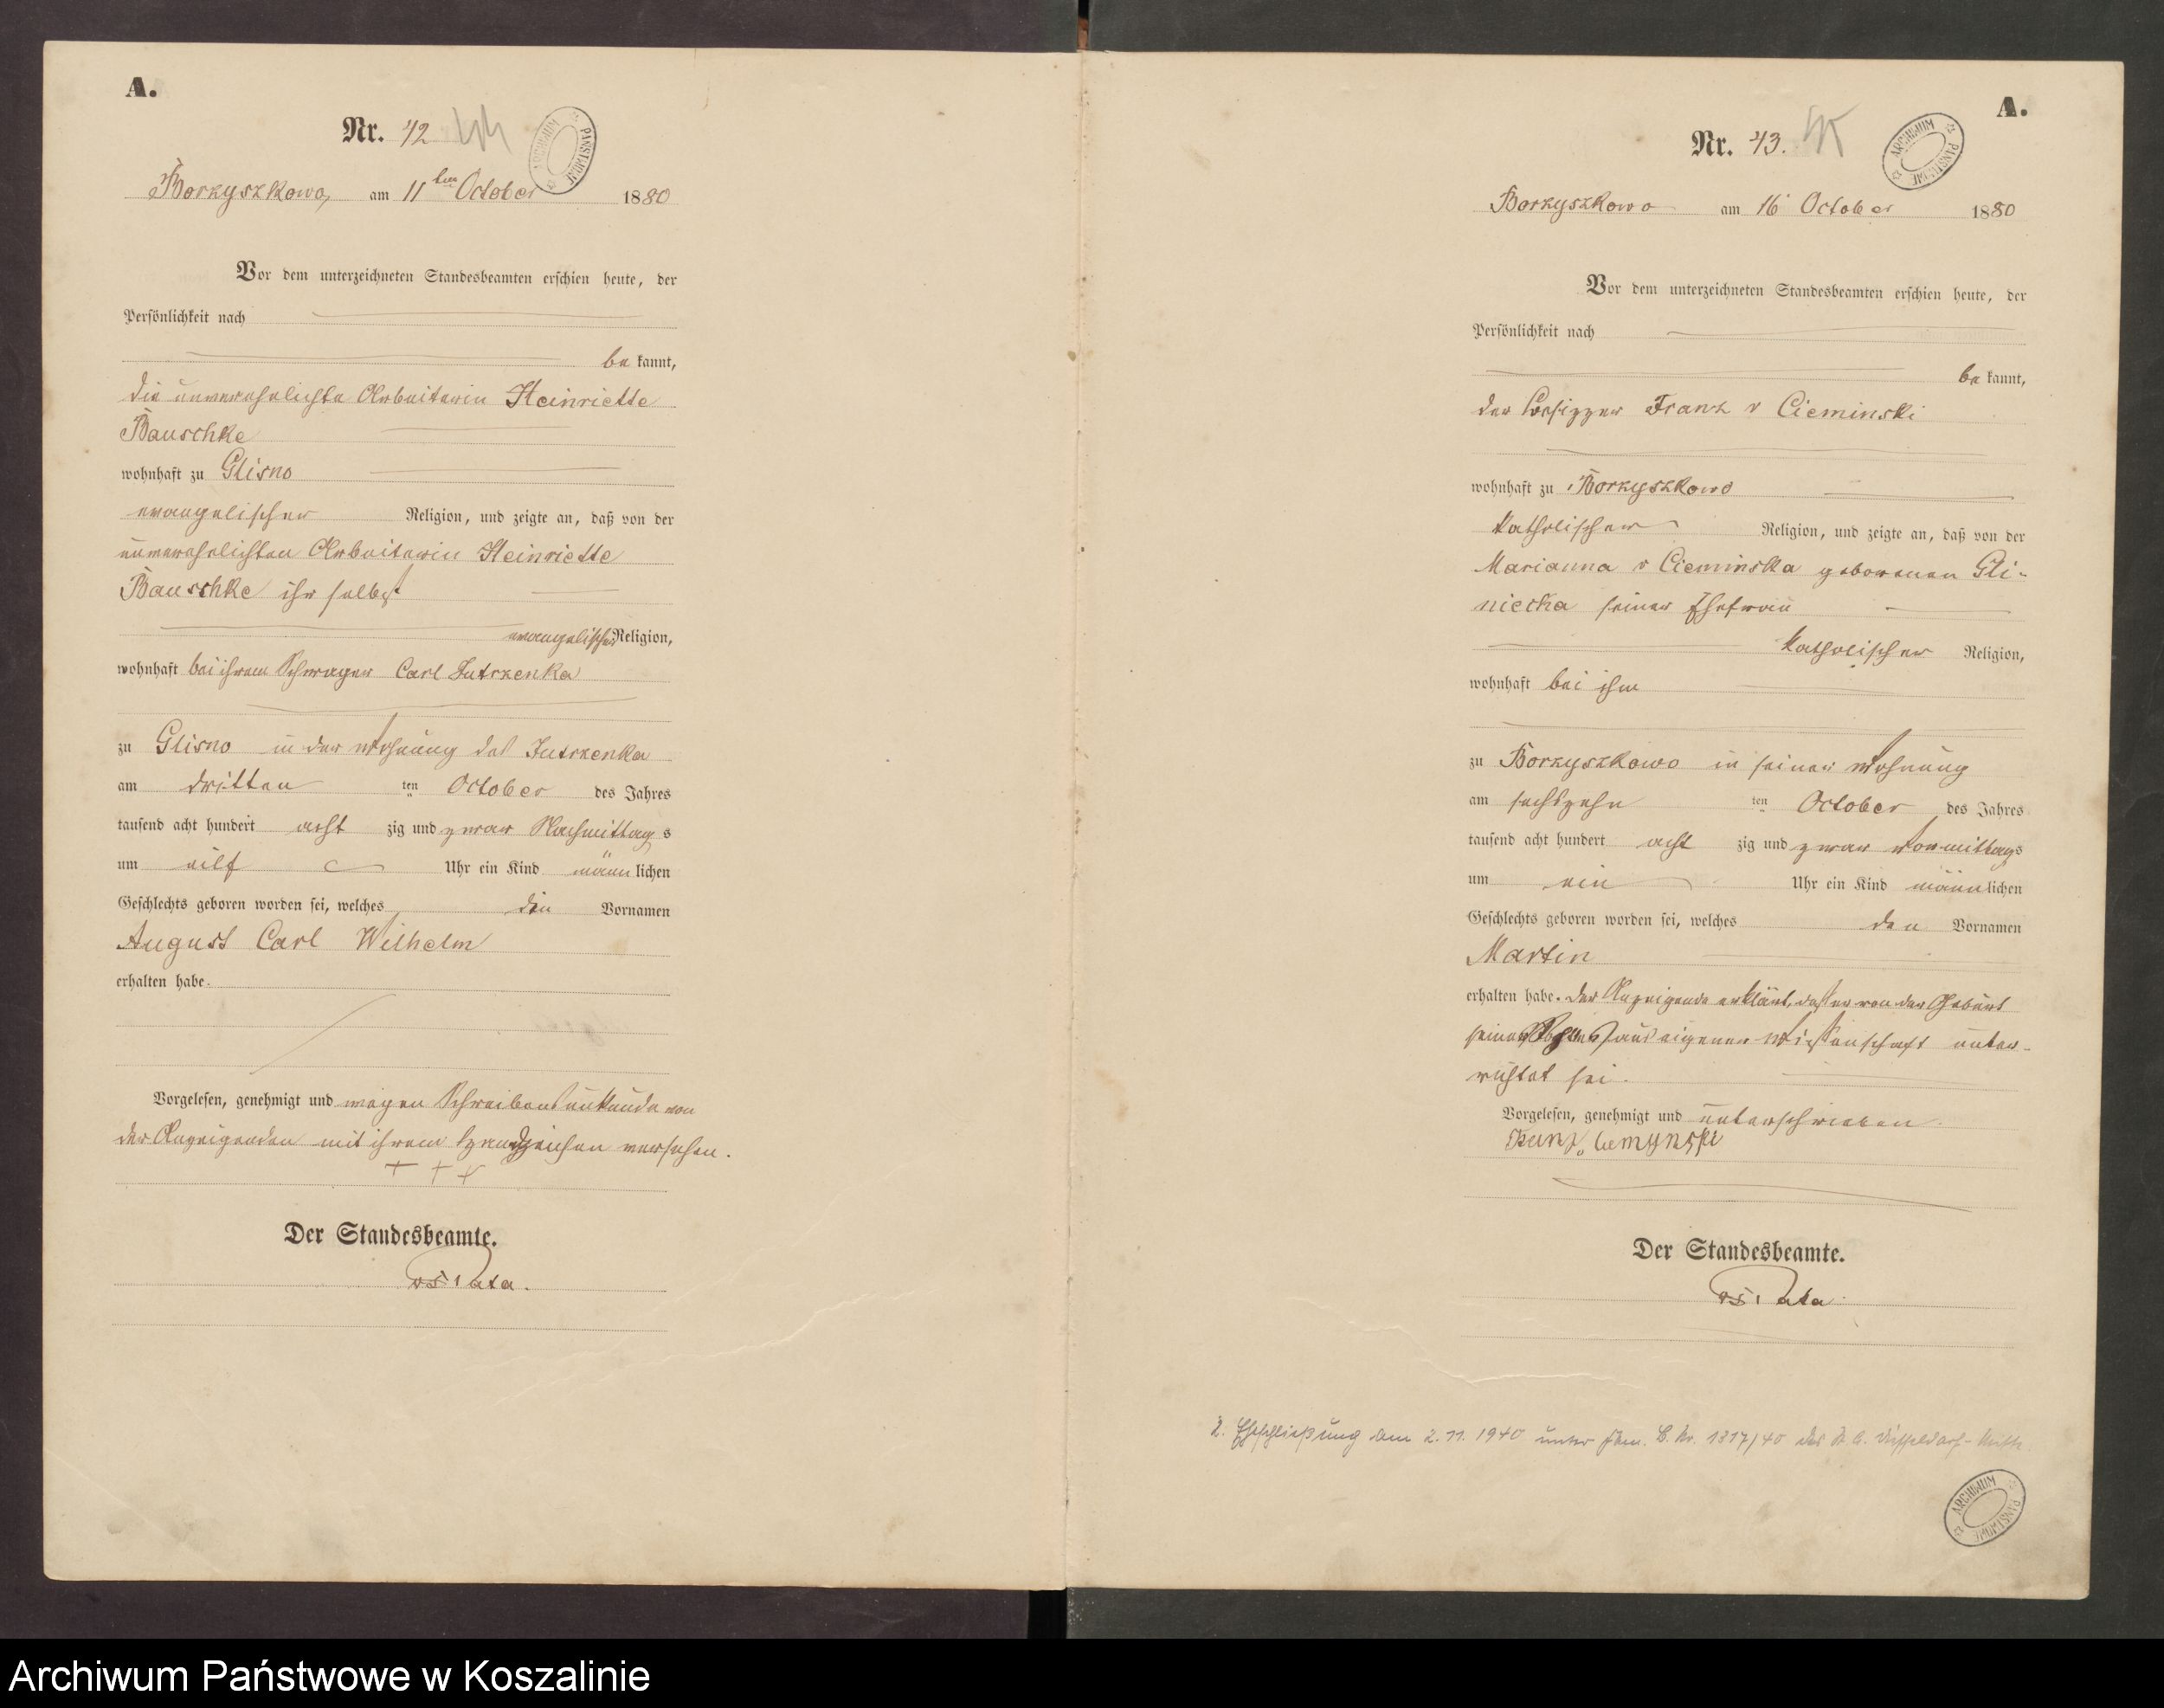 A.
Nr. 42 44
ARCHIWUM PAŃSTWOWE
Borzyszkowo, am 11ten October 1880
Vor dem unterzeichneten Standesbeamten erschien heute, der
Persönlichkeit nach
be kannt,
die unverehelichte Arbeiterin Heinriette
Bauschke
wohnhaft zu Glisno
evangelischer Religion, und zeigte an, daß von der
unverehelichten Arbeiterin Heinriette
Bauschke ihr selbst
evangelischer Religion,
wohnhaft bei ihrem Schwager Carl Jutrzenka
zu Glisno in der Wohnung des Jutrzenka
am dritten ten October des Jahres
tausend acht hundert acht zig und zwar Nachmittag s
um eilf Uhr ein Kind männ lichen
Geschlechts geboren worden sei, welches die Vornamen
August Carl Wilhelm
erhalten habe.
Vorgelesen, genehmigt und wegen Schreibensunkunde von
der Anzeigenden mit ihrem Handzeichen versehen.
+ + +
Der Standesbeamte.
A.
Nr. 43. 45
ARCHIWUM PAŃSTWOWE
Borzyszkowo am 16 October 1880
Vor dem unterzeichneten Standesbeamten erschien heute, der
Persönlichkeit nach
be kannt,
der Besitzer Franz v Cieminski
wohnhaft zu Borzyszkowo
katholischer Religion, und zeigte an, daß von der
Marianna v Cieminska geborenen Gli-
niecka seiner Ehefrau
katholischer Religion,
wohnhaft bei ihm
zu Borzyszkowo in seiner Wohnung
am sechszehn ten October des Jahres
tausend acht hundert acht zig und zwar Vormittags
um ein Uhr ein Kind männ lichen
Geschlechts geboren worden sei, welches den Vornamen
Martin
erhalten habe. Der Anzeigende erklärt, daß er von der Geburt
seines Sohnes aus eigener Wissenschaft unter-
richtet sei.
Vorgelesen, genehmigt und unterschrieben.
Der Standesbeamte.
2. Eheschließung am 2.11.1940 unter Nr. 1317/40 des St. A. Düsseldorf-Mitte
ARCHIWUM PAŃSTWOWE
Archiwum Państwowe w Koszalinie